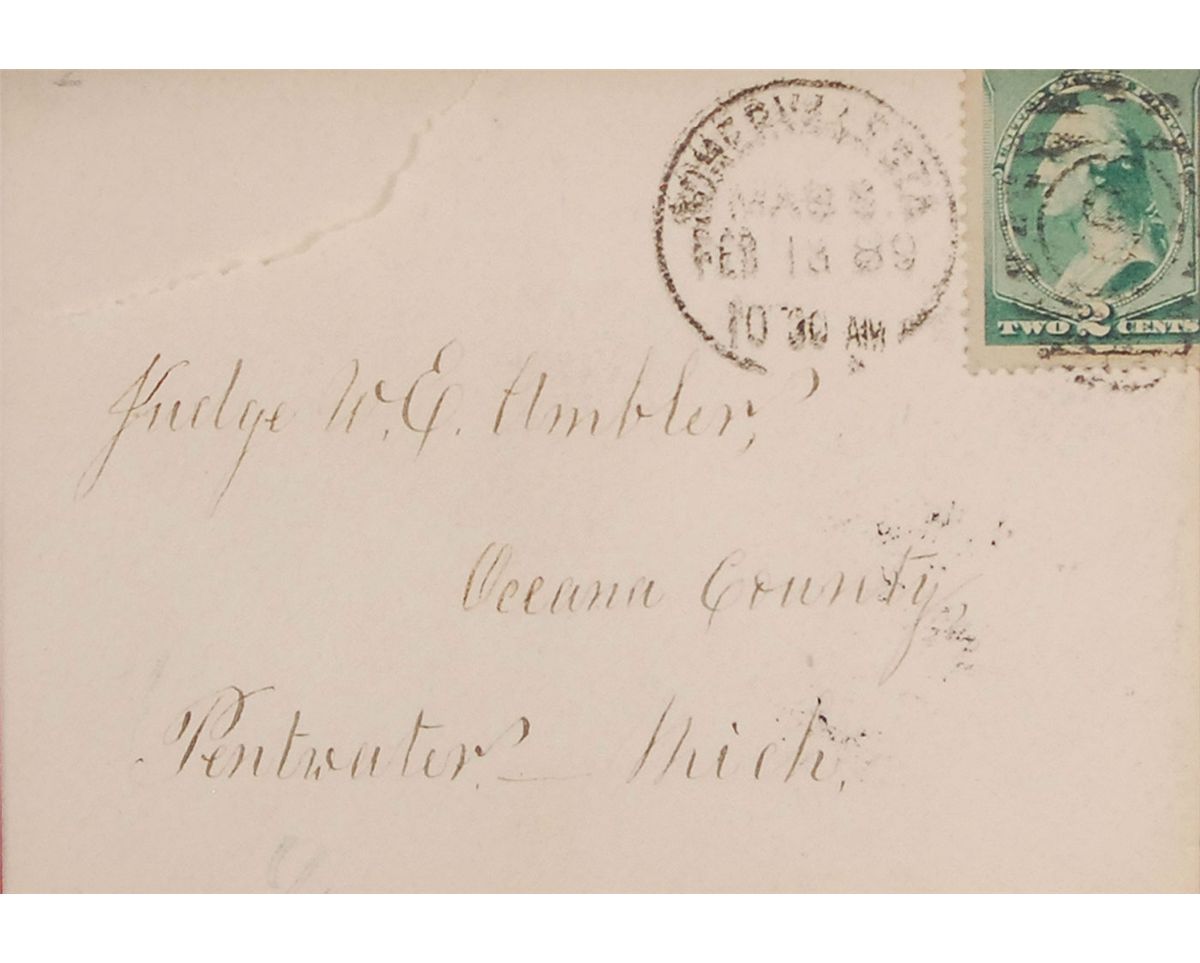 SOMERVILLE STA
MASS.
FEB 13 89
10 30 AM
UNITED STATES POSTAGE
TWO 2 CENTS
Judge W. E. Ambler,
Oceana County,
Pentwater, Mich.